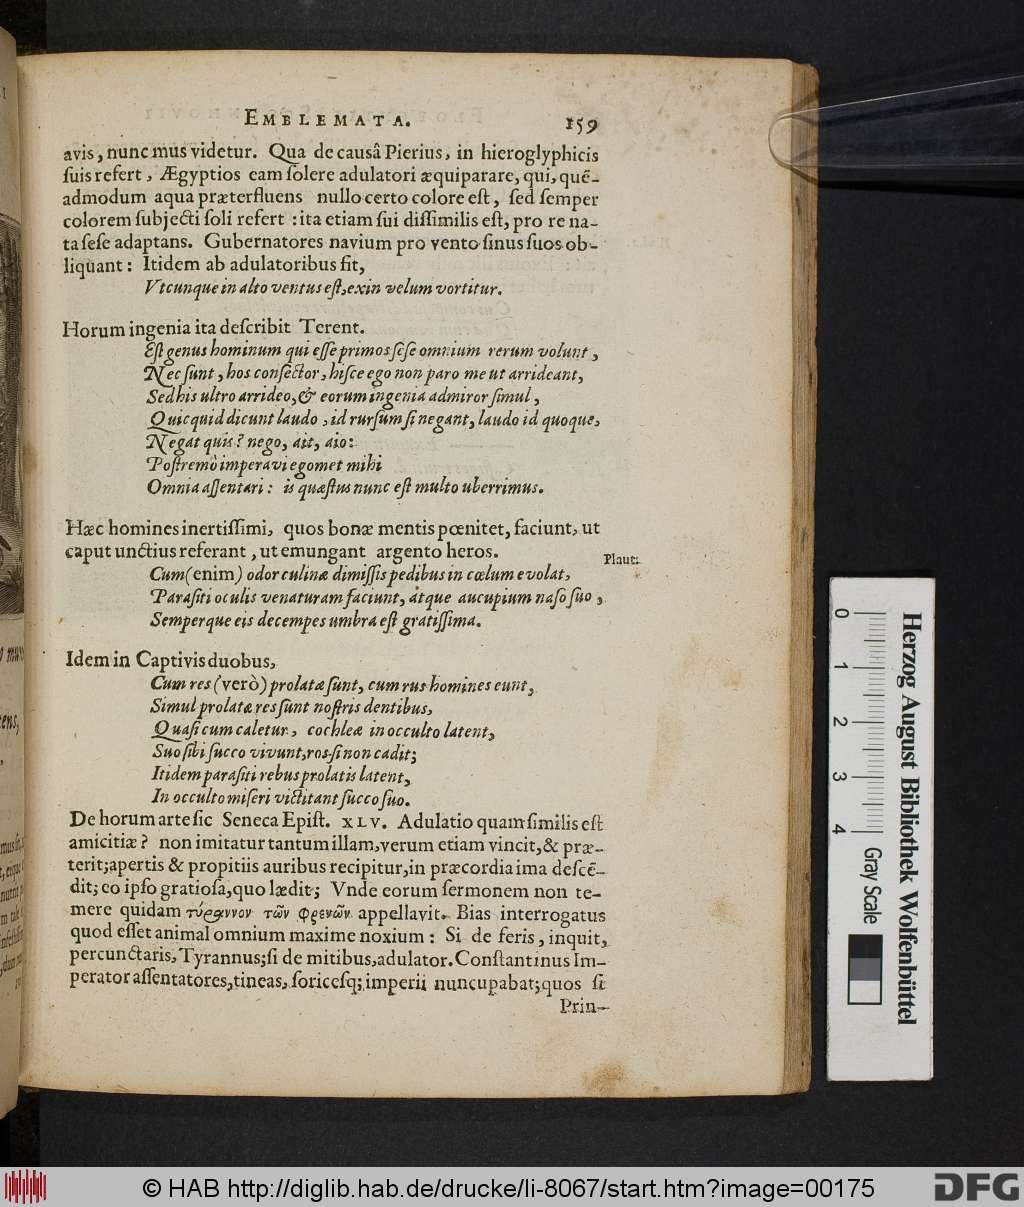 EMBLEMATA. 159
avis, nunc mus videtur. Qua de causâ Pierius, in hieroglyphicis
suis refert, Ægyptios eam solere adulatori æquiparare, qui, quē-
admodum aqua præterfluens nullo certo colore est, sed semper
colorem subjecti soli refert : ita etiam sui dissimilis est, pro re na-
ta sese adaptans. Gubernatores navium pro vento sinus suos ob-
liquant : Itidem ab adulatoribus fit,
Vtcunque in alto ventus est, exin velum vortitur.
Horum ingenia ita describit Terent.
Est genus hominum qui esse primos sese omnium rerum volunt,
Nec sunt, hos consector, hisce ego non paro me ut arrideant,
Sed his ultro arrideo, & eorum ingenia admiror simul,
Quicquid dicunt laudo, id rursum si negant, laudo id quoque,
Negat quis? nego, ait, aio:
Postremò imperavi egomet mihi
Omnia assentari : is quæstus nunc est multo uberrimus.
Hæc homines inertissimi, quos bonæ mentis pœnitet, faciunt, ut
caput unctius referant, ut emungant argento heros.
Plaut:
Cum (enim) odor culinæ dimissis pedibus in cœlum evolat,
Parasiti oculis venaturam faciunt, atque aucupium naso suo,
Semperque eis decempes umbra est gratissima.
Idem in Captivis duobus,
Cum res (verò) prolatæ sunt, cum rus homines eunt,
Simul prolatæ res sunt nostris dentibus,
Quasi cum caletur, cochleæ in occulto latent,
Suo sibi succo vivunt, ros si non cadit;
Itidem parasiti rebus prolatis latent,
In occulto miseri victitant succo suo.
De horum arte sic Seneca Epist. XLV. Adulatio quam similis est
amicitiæ? non imitatur tantum illam, verum etiam vincit, & præ-
terit; apertis & propitiis auribus recipitur, in præcordia ima descē-
dit; eo ipso gratiosa, quo lædit; Vnde eorum sermonem non te-
mere quidam τύραννον τῶν φρενῶν appellavit. Bias interrogatus
quod esset animal omnium maxime noxium : Si de feris, inquit,
percunctaris, Tyrannus; si de mitibus, adulator. Constantinus Im-
perator assentatores, tineas, soricesq; imperii nuncupabat; quos si
Prin-
0 1 2 3 4
Herzog August Bibliothek Wolfenbüttel
Gray Scale
© HAB http://diglib.hab.de/drucke/li-8067/start.htm?image=00175
DFG